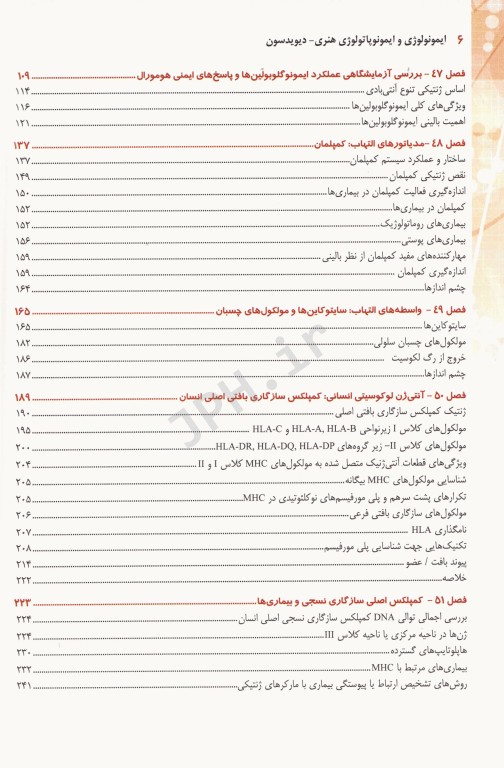 ۶ ایمونولوژی و ایمونوپاتولوژی هنری- دیویدسون
فصل ۴۷ - بررسی آزمایشگاهی عملکرد ایمونوگلوبولین‌ها و پاسخ‌های ایمنی هومورال ۱۰۹
اساس ژنتیکی تنوع آنتی‌بادی ۱۱۴
ویژگی‌های کلی ایمونوگلوبولین‌ها ۱۱۶
اهمیت بالینی ایمونوگلوبولین‌ها ۱۲۱
فصل ۴۸ -مدیاتورهای التهاب: کمپلمان ۱۳۷
ساختار و عملکرد سیستم کمپلمان ۱۳۷
نقص ژنتیکی کمپلمان ۱۴۹
اندازه‌گیری فعالیت کمپلمان در بیماری‌ها ۱۵۰
کمپلمان در بیماری‌ها ۱۵۲
بیماری‌های روماتولوژیک ۱۵۲
بیماری‌های پوستی ۱۵۶
مهارکننده‌های مفید کمپلمان از نظر بالینی ۱۵۹
اندازه‌گیری کمپلمان ۱۵۹
چشم اندازها ۱۶۴
فصل ۴۹ - واسطه‌های التهاب: سایتوکاین‌ها و مولکول‌های چسبان ۱۶۵
سایتوکاین‌ها ۱۶۵
مولکول‌های چسبان سلولی ۱۸۲
خروج از رگ لکوسیت ۱۸۶
چشم اندازها ۱۸۷
فصل ۵۰ - آنتی‌ژن لوکوسیتی انسانی: کمپلکس سازگاری بافتی اصلی انسان ۱۸۹
ژنتیک کمپلکس سازگاری بافتی اصلی ۱۹۰
مولکول‌های کلاس I زیرنواحی HLA-A, HLA-B و HLA-C ۱۹۵
مولکول‌های کلاس II- زیر گروه‌های HLA-DR, HLA-DQ, HLA-DP ۲۰۰
ویژگی‌های قطعات آنتی‌ژنیک متصل شده به مولکول‌های MHC کلاس I و II ۲۰۴
شناسایی مولکول‌های MHC بیگانه ۲۰۵
تکرارهای پشت سرهم و پلی مورفیسم‌های نوکلئوتیدی در MHC ۲۰۵
مولکول‌های سازگاری بافتی فرعی ۲۰۶
نامگذاری HLA ۲۰۷
تکنیک‌هایی جهت شناسایی پلی مورفیسم ۲۰۸
پیوند بافت / عضو ۲۱۴
خلاصه ۲۲۲
فصل ۵۱ - کمپلکس اصلی سازگاری نسجی و بیماری‌ها ۲۲۳
بررسی اجمالی توالی DNA کمپلکس سازگاری نسجی اصلی انسان ۲۲۴
ژن‌ها در ناحیه مرکزی یا ناحیه کلاس III ۲۲۴
هاپلوتایپ‌های گسترده ۲۳۰
بیماری‌های مرتبط با MHC ۲۳۲
روش‌های تشخیص ارتباط یا پیوستگی بیماری با مارکرهای ژنتیکی ۲۴۱
JPH.ir